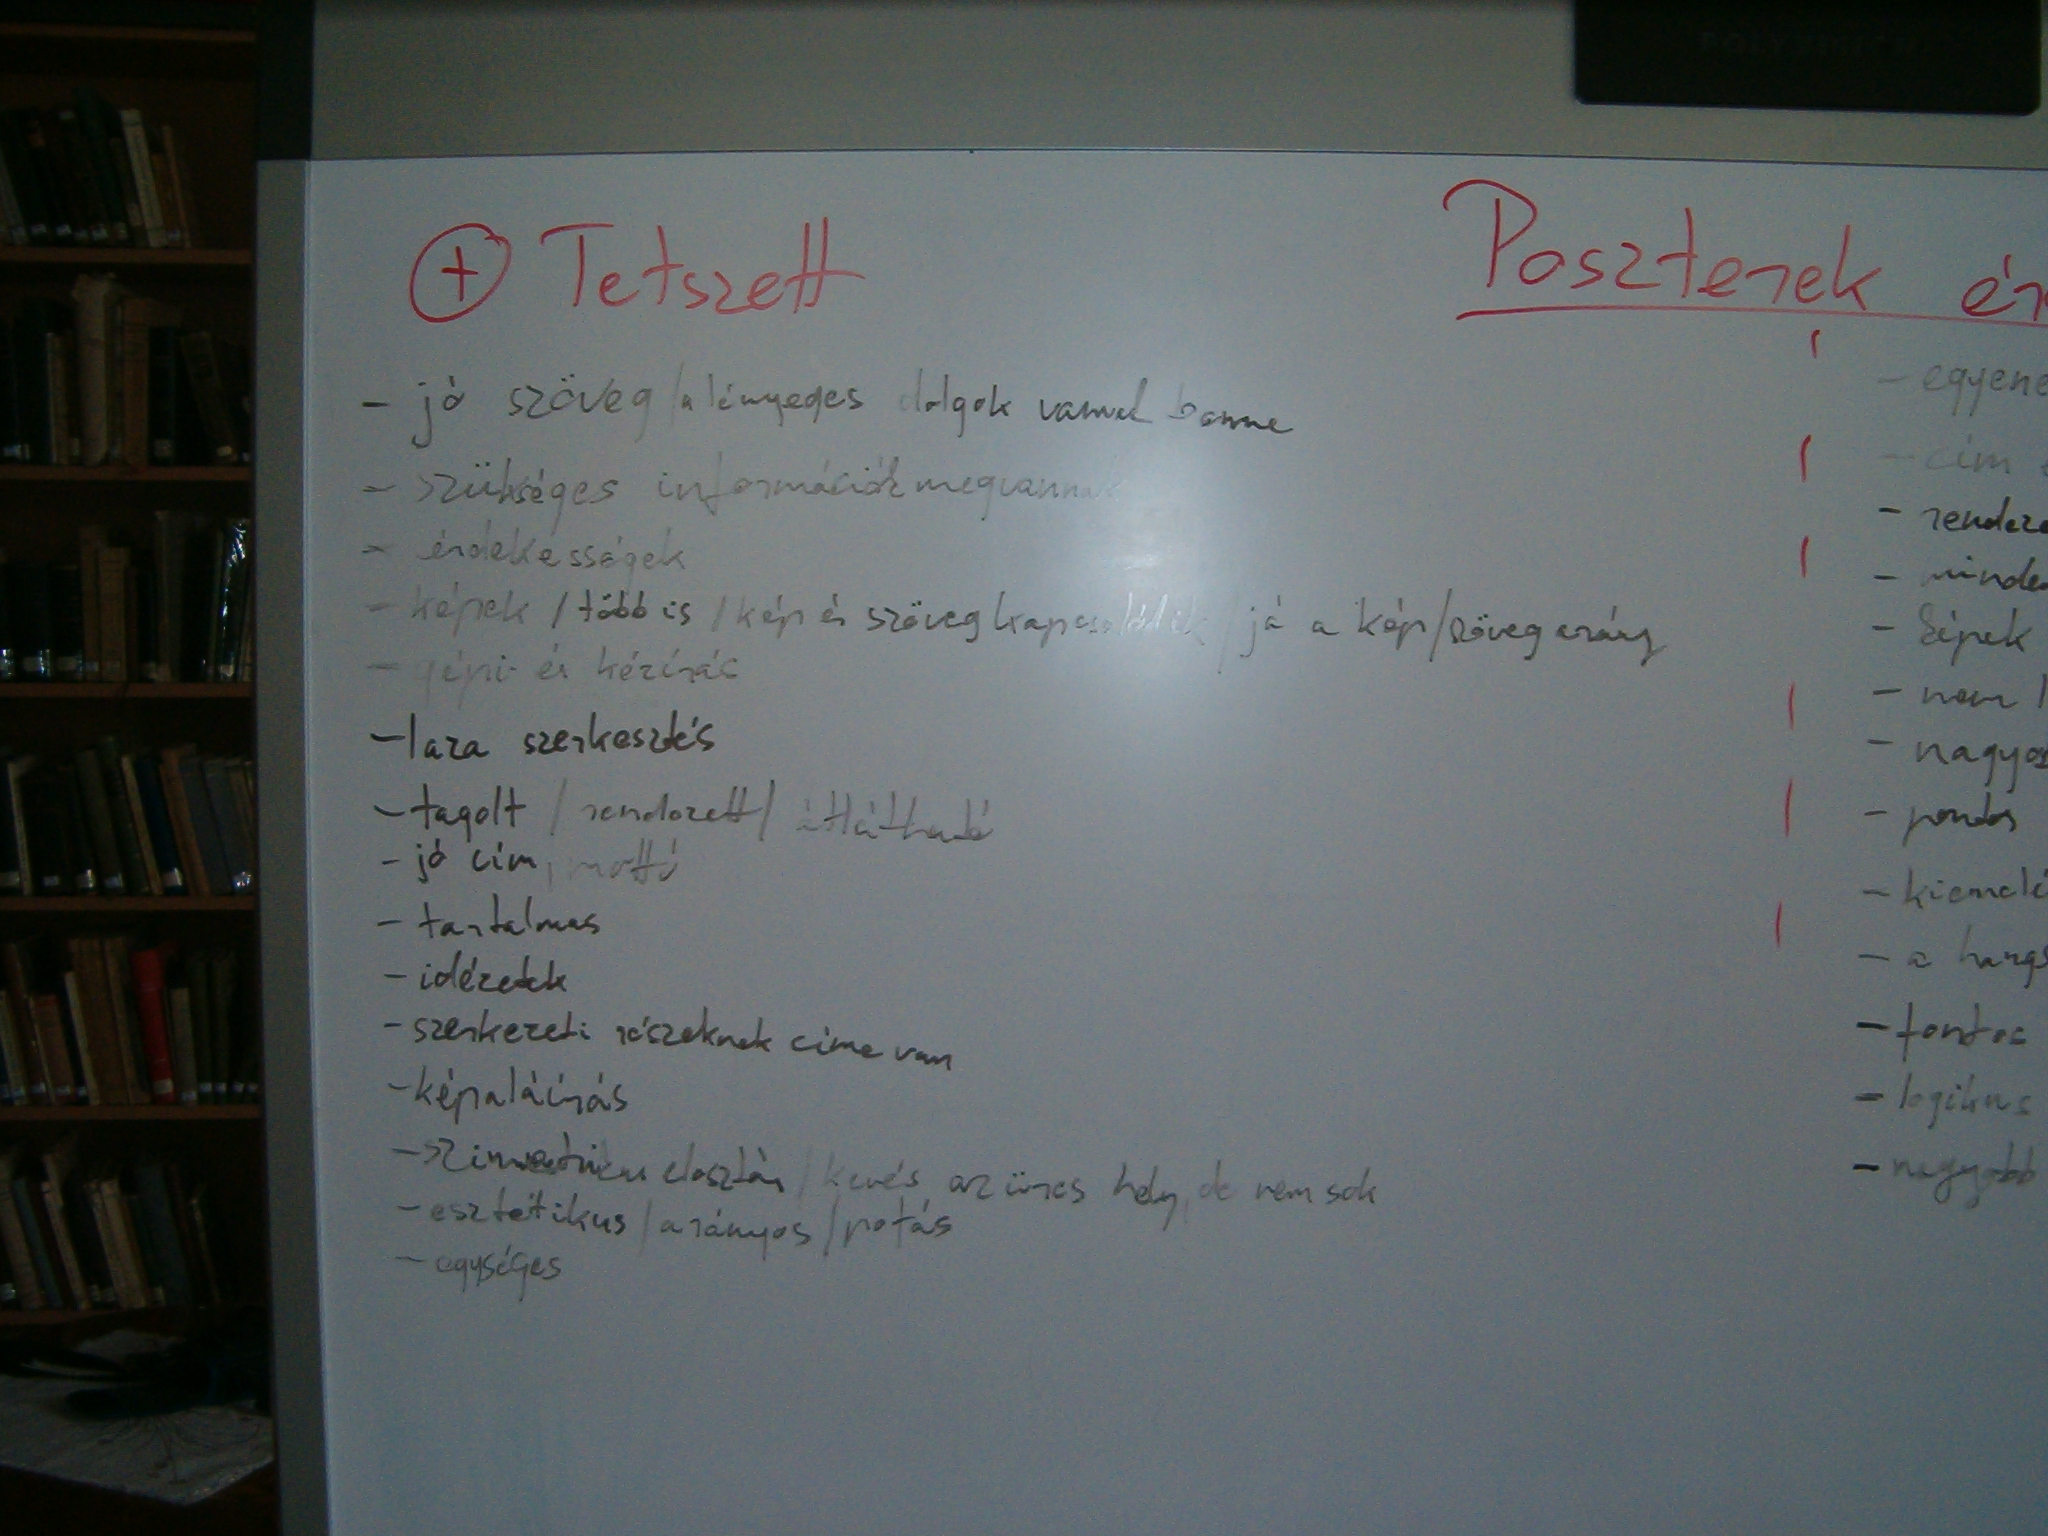 + Tetszett
- jó szöveg / a lényeges dolgok vannak benne
- szükséges információk megvannak
- érdekességek
- képek / több is / kép és szöveg kapcsolódik / jó a kép/szöveg arány
- gépi és kézírás
- laza szerkesztés
- tagolt / rendezett / átlátható
- jó cím, mottó
- tartalmas
- idézetek
- szerkezeti részeknek címe van
- képaláírás
- szimmetrikus elosztás / kevés az üres hely, de nem sok
- esztétikus / arányos /
- egységes
Poszterek ér
- egyene
- cím
- rendeze
- minde
- képek
- nem
- nagyos
- pontos
- kiemelé
- a hangs
- fontos
- logikus
- nagyobb